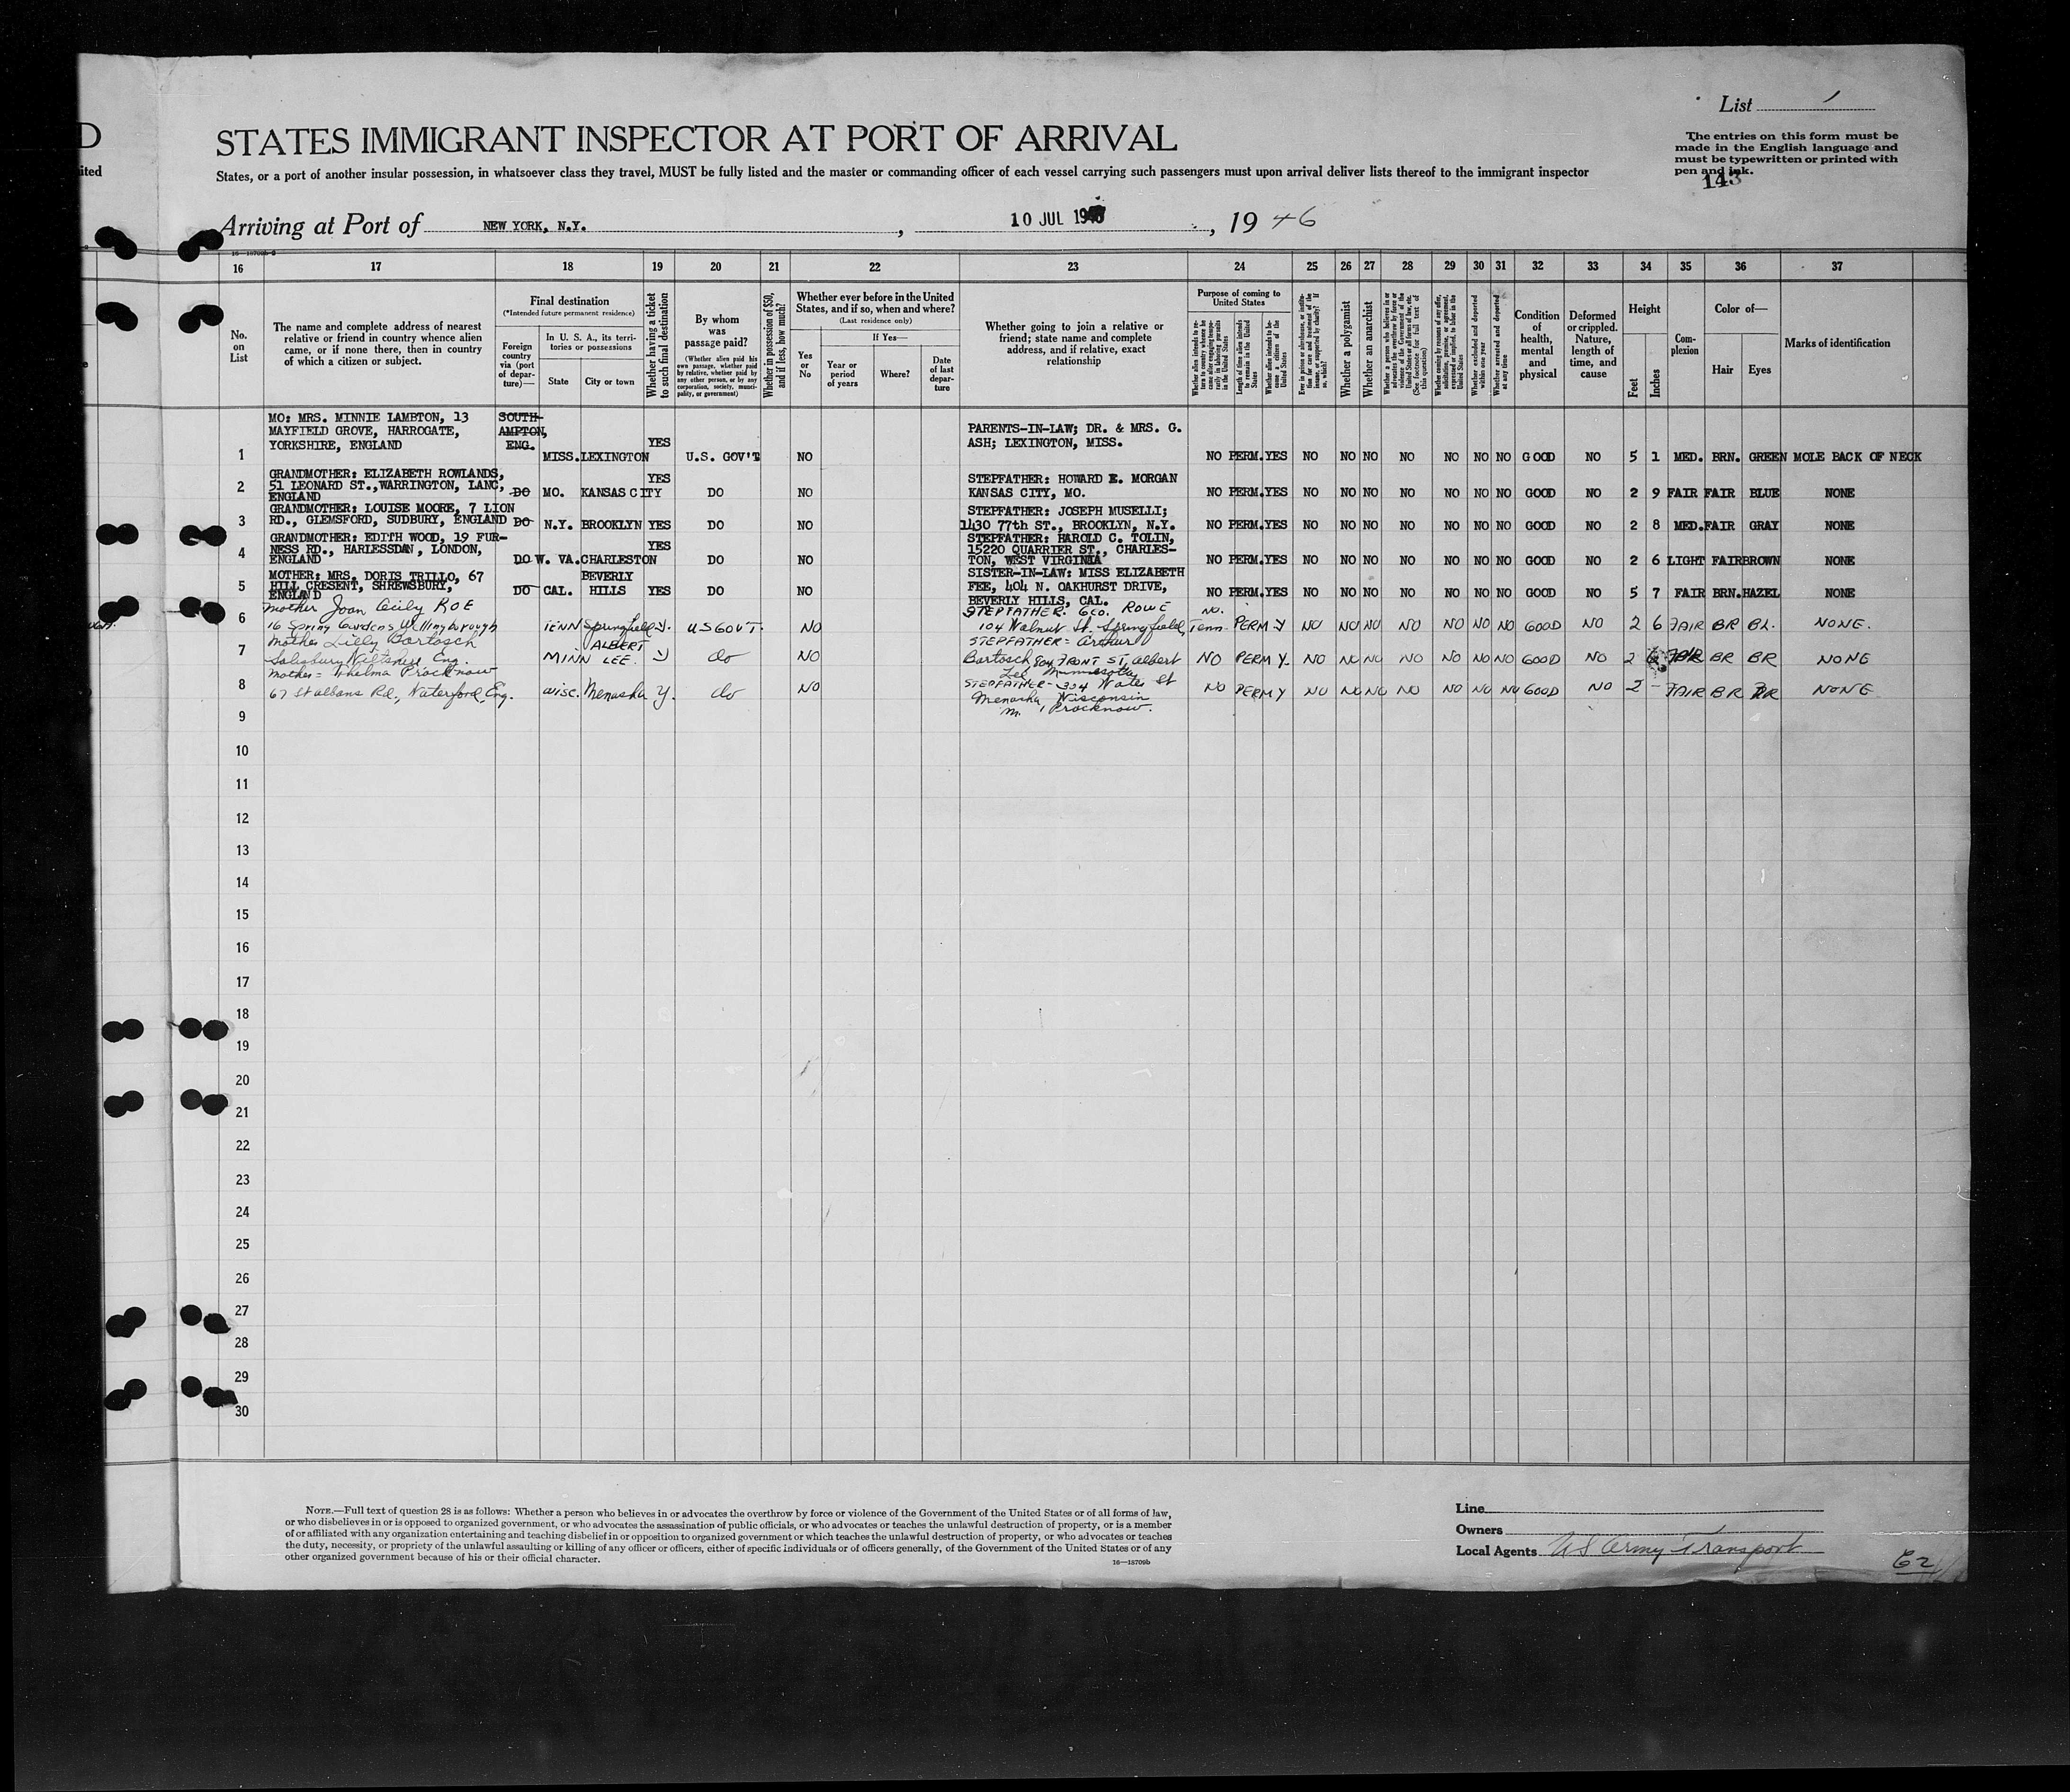 List 1
STATES IMMIGRANT INSPECTOR AT PORT OF ARRIVAL
The entries on this form must be
made in the English language and
must be typewritten or printed with
pen and ink.
143
States, or a port of another insular possession, in whatsoever class they travel, MUST be fully listed and the master or commanding officer of each vessel carrying such passengers must upon arrival deliver lists thereof to the immigrant inspector
Arriving at Port of NEW YORK, N.Y. , 10 JUL , 19 46
16 17 18 19 20 21 22 23 24 25 26 27 28 29 30 31 32 33 34 35 36 37
No. on List
The name and complete address of nearest
relative or friend in country whence alien
came, or if none there, then in country
of which a citizen or subject.
Final destination
(*Intended future permanent residence)
Foreign country via (port of departure)—
In U. S. A., its territories or possessions
State
City or town
Whether having a ticket to such final destination
By whom was passage paid?
(Whether alien paid his own passage, whether paid by relative, whether paid by any other person, or by any corporation, society, municipality, or government)
Whether in possession of $50, and if less, how much?
Whether ever before in the United States, and if so, when and where?
(Last residence only)
Yes or No
If Yes—
Year or period of years
Where?
Date of last departure
Whether going to join a relative or
friend; state name and complete
address, and if relative, exact
relationship
Purpose of coming to United States
Length of time alien intends to remain in the United States
Whether alien intends to become a citizen of the United States
Whether a polygamist
Whether an anarchist
Whether arrested and deported at any time
Condition of health, mental and physical
Deformed or crippled. Nature, length of time, and cause
Height
Feet
Inches
Complexion
Color of—
Hair
Eyes
Marks of identification
1 MO: MRS. MINNIE LAMBTON, 13
MAYFIELD GROVE, HARROGATE,
YORKSHIRE, ENGLAND
SOUTH-
AMPTON,
ENG. MISS. LEXINGTON YES U.S. GOV'T NO
PARENTS-IN-LAW; DR. & MRS. G.
ASH; LEXINGTON, MISS.
NO PERM. YES NO NO NO NO NO NO NO GOOD NO 5 1 MED. BRN. GREEN MOLE BACK OF NECK
2 GRANDMOTHER: ELIZABETH ROWLANDS,
51 LEONARD ST., WARRINGTON, LANC,
ENGLAND
DO MO. KANSAS CITY YES DO NO
STEPFATHER: HOWARD E. MORGAN
KANSAS CITY, MO.
NO PERM. YES NO NO NO NO NO NO NO GOOD NO 2 9 FAIR FAIR BLUE NONE
3 GRANDMOTHER: LOUISE MOORE, 7 LION
RD., GLEMSFORD, SUDBURY, ENGLAND
DO N.Y. BROOKLYN YES DO NO
STEPFATHER: JOSEPH MUSELLI;
1430 77th ST., BROOKLYN, N.Y.
NO PERM. YES NO NO NO NO NO NO NO GOOD NO 2 8 MED. FAIR GRAY NONE
4 GRANDMOTHER: EDITH WOOD, 19 FUR-
NESS RD., HARLESSDAN, LONDON,
ENGLAND
DO W. VA. CHARLESTON YES DO NO
STEPFATHER: HAROLD C. TOLIN,
15220 QUARRIER ST., CHARLES-
TON, WEST VIRGINIA
NO PERM. YES NO NO NO NO NO NO NO GOOD NO 2 6 LIGHT FAIR BROWN NONE
5 MOTHER: MRS. DORIS TRILLO, 67
HILL CRESENT, SHREWSBURY,
ENGLAND
DO CAL. BEVERLY HILLS YES DO NO
SISTER-IN-LAW: MISS ELIZABETH
FEE, 404 N. OAKHURST DRIVE,
BEVERLY HILLS, CAL.
NO PERM. YES NO NO NO NO NO NO NO GOOD NO 5 7 FAIR BRN. HAZEL NONE
6 Mother Joan Cicily ROE
16 Spring Gardens Wellingborough
TENN Springfield Y. US GOVT. NO
STEPFATHER. GEO. ROWE
104 Walnut St. Springfield, Tenn
NO. PERM Y NO NO NO NO NO NO NO GOOD NO 2 6 FAIR BR BR. NONE.
7 Mother Lilly Bartosch
Salisbury Wiltshire Eng.
MINN ALBERT LEE. Y do NO
STEPFATHER = Arthur
Bartosch 804 FRONT ST, Albert
Lee, Minnesota
NO PERM Y NO NO NO NO NO NO NO GOOD NO 2 FAIR BR BR NONE
8 Mother = Thelma Procknow
67 St albans Rd., Waterford, Eng.
WISC. Menasha Y. do NO
STEPFATHER - 334 Water St
Menasha, Wisconsin
M. Procknow.
NO PERM Y NO NO NO NO NO NO NO GOOD NO 2 - FAIR BR BR NONE
9
10
11
12
13
14
15
16
17
18
19
20
21
22
23
24
25
26
27
28
29
30
NOTE.—Full text of question 28 is as follows: Whether a person who believes in or advocates the overthrow by force or violence of the Government of the United States or of all forms of law,
or who disbelieves in or is opposed to organized government, or who advocates the assassination of public officials, or who advocates or teaches the unlawful destruction of property, or is a member
of or affiliated with any organization entertaining and teaching disbelief in or opposition to organized government or which teaches the unlawful destruction of property, or who advocates or teaches
the duty, necessity, or propriety of the unlawful assaulting or killing of any officer or officers, either of specific individuals or of officers generally, of the Government of the United States or of any
other organized government because of his or their official character.
16—18709b
Line
Owners
Local Agents US Army Transport
62